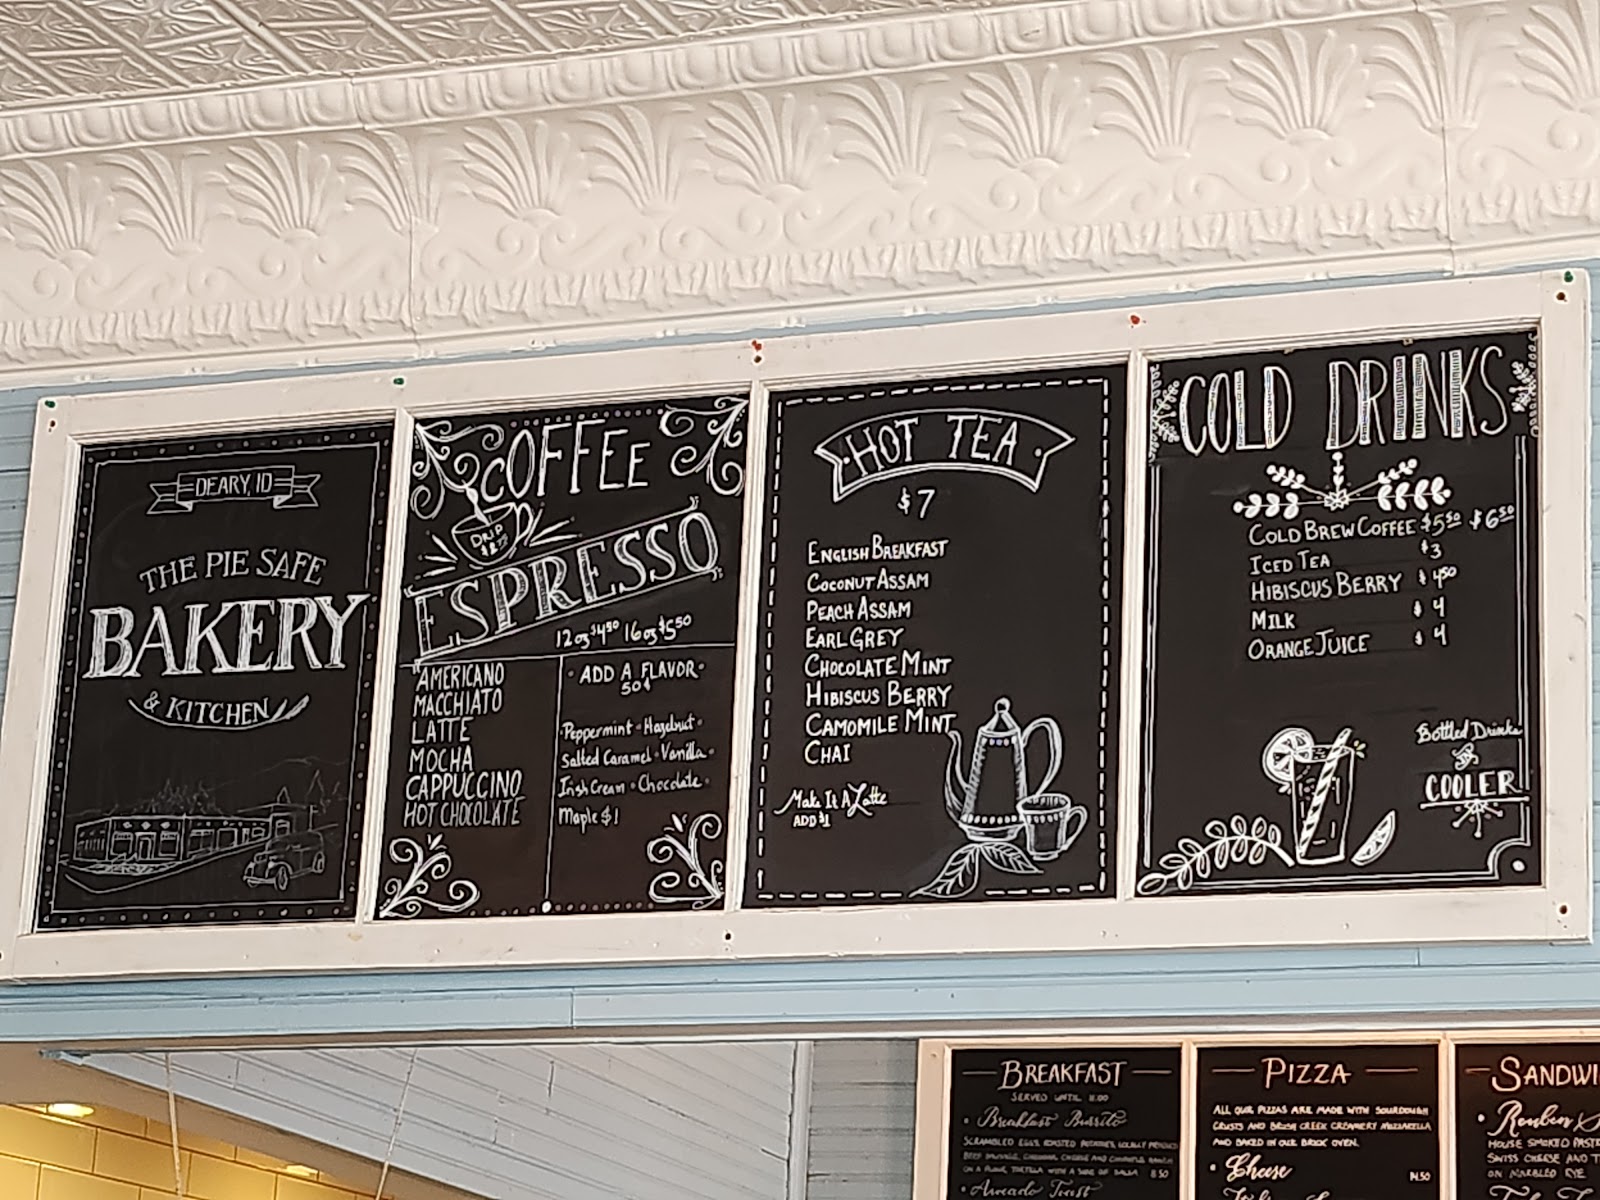 DEARY, ID
THE PIE SAFE
BAKERY
& KITCHEN
COFFEE
DRIP
ESPRESSO
12oz $4.50 16oz $5.50
AMERICANO
MACCHIATO
LATTE
MOCHA
CAPPUCCINO
HOT CHOCOLATE
· ADD A FLAVOR ·
50¢
·Peppermint · Hazelnut ·
Salted Caramel · Vanilla ·
Irish Cream · Chocolate ·
Maple $1
·HOT TEA·
$7
ENGLISH BREAKFAST
COCONUT ASSAM
PEACH ASSAM
EARL GREY
CHOCOLATE MINT
HIBISCUS BERRY
CAMOMILE MINT
CHAI
Make It A Latte
ADD $1
COLD DRINKS
COLD BREW COFFEE $5.50 $6.50
ICED TEA $3
HIBISCUS BERRY $4.50
MILK $4
ORANGE JUICE $4
Bottled Drinks
in
COOLER
BREAKFAST
SERVED UNTIL 11:00
• Breakfast Burrito
SCRAMBLED EGGS, ROASTED POTATOES, LOCALLY
BEEF SAUSAGE, CHEDDAR CHEESE AND CHIPOTLE RANCH
ON A FLOUR TORTILLA WITH A SIDE OF SALSA 8.50
• Avocado Toast
PIZZA
ALL OUR PIZZAS ARE MADE WITH SOURDOUGH
CRUSTS AND BRUSH CREEK CREAMERY MOZZARELLA
AND BAKED IN OUR BRICK OVEN.
• Cheese 14.50
SANDWI
• Reuben S
HOUSE SMOKED PAST
SWISS CHEESE AND T
ON MARBLED RYE